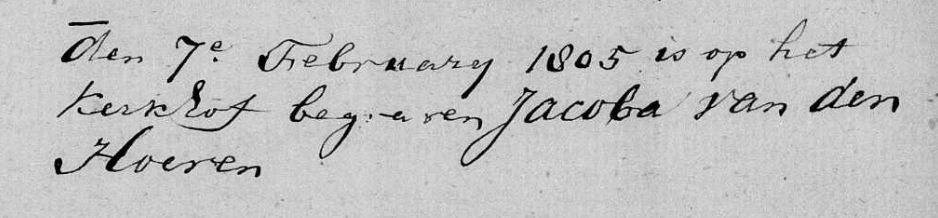 den 7e February 1805 is op het
kerkhof begraven Jacoba van den
Hoeven